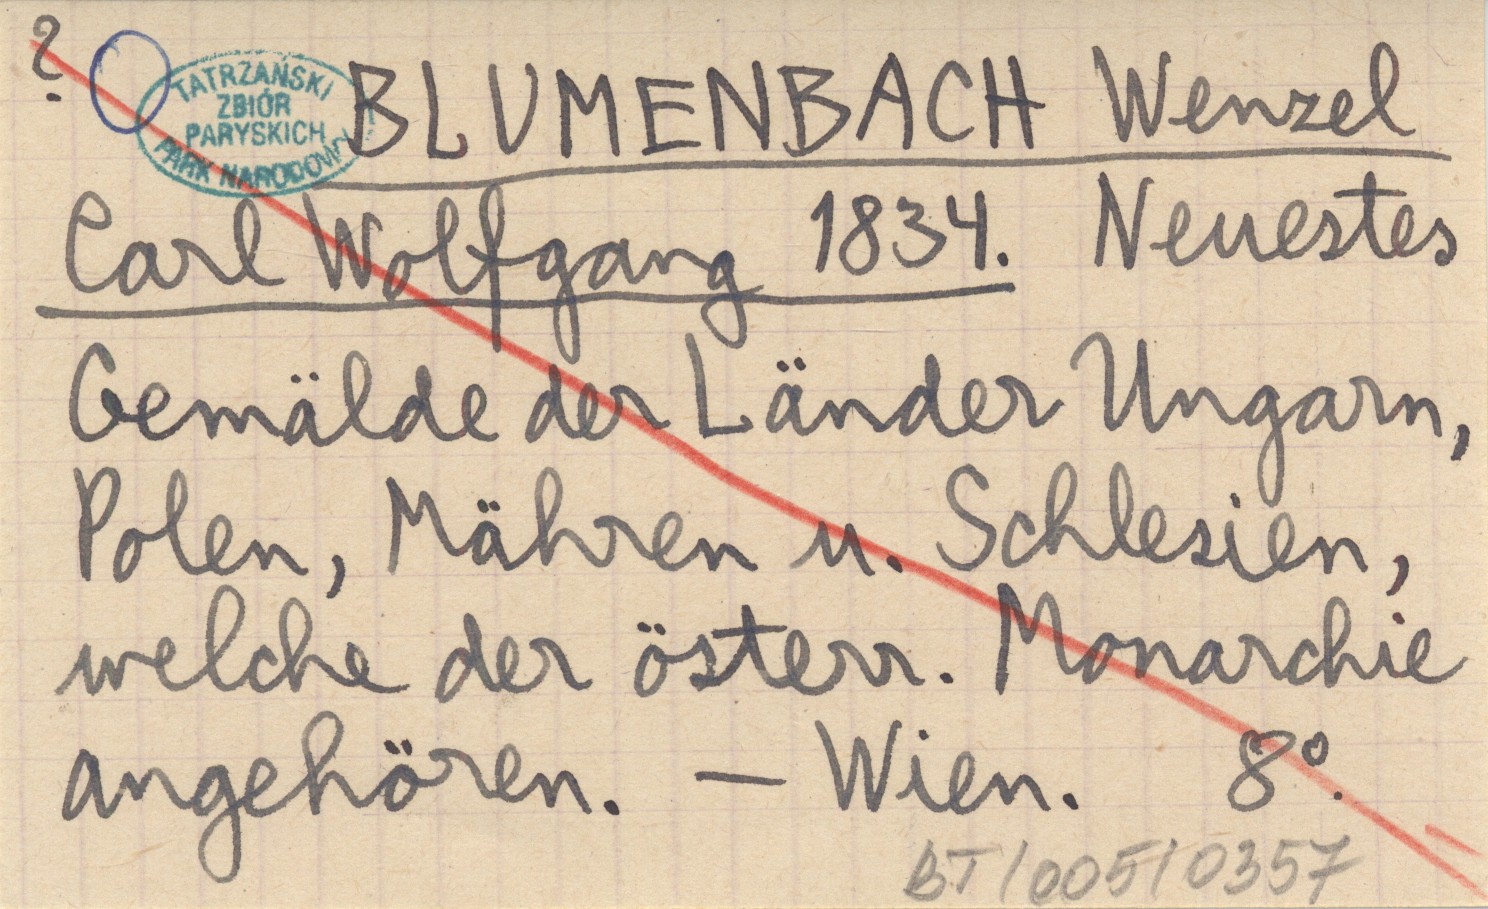 ?
TATRZAŃSKI
ZBIÓR
PARYSKICH
PARK NARODOWY
BLUMENBACH Wenzel
Carl Wolfgang 1834. Neuestes
Gemälde der Länder Ungarn,
Polen, Mähren u. Schlesien,
welche der österr. Monarchie
angehören. — Wien. 8°.
BT/005/0357